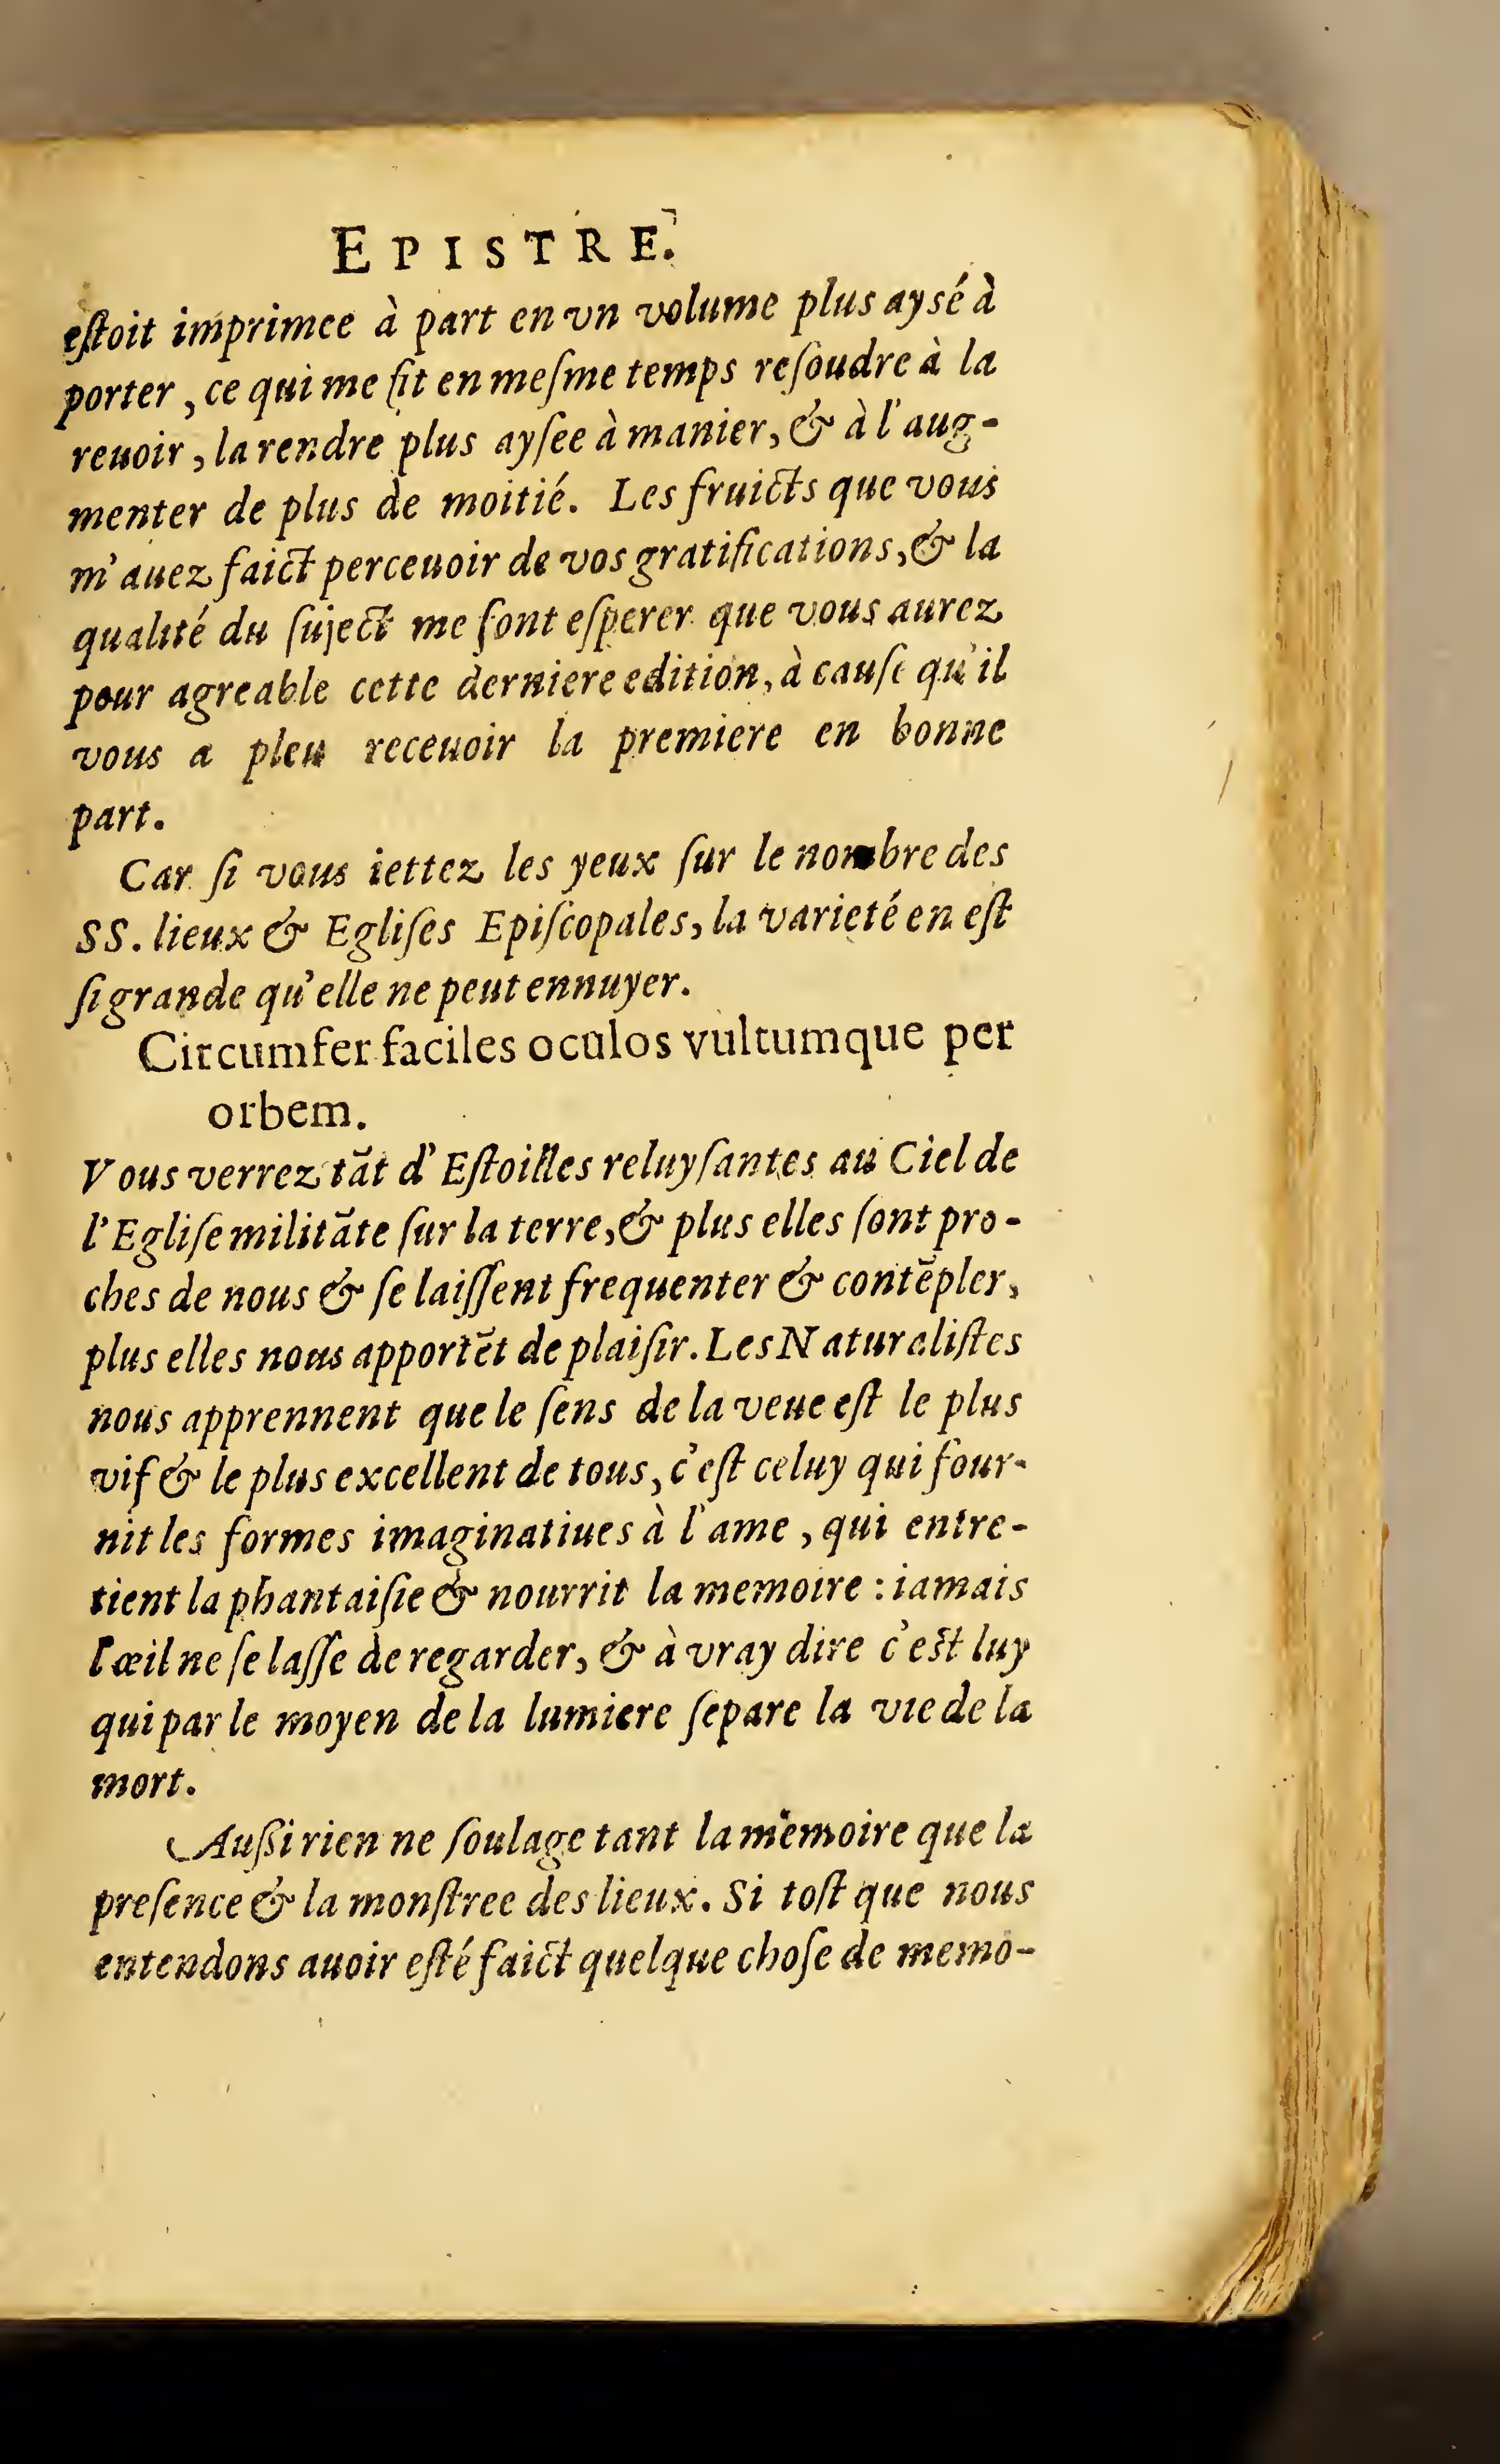 EPISTRE.
eſtoit imprimee à part en vn volume plus aysé à
porter, ce qui me fit en meſme temps reſoudre à la
reuoir, la rendre plus ayſee à manier, & à l'aug-
menter de plus de moitié. Les fruicts que vous
m'auez faict perceuoir de vos gratifications, & la
qualité du ſuject me font eſperer que vous aurez
pour agreable cette derniere edition, à cauſe qu'il
vous a pleu receuoir la premiere en bonne
part.
Car ſi vous iettez les yeux ſur le nombre des
SS. lieux & Egliſes Epiſcopales, la varieté en eſt
ſi grande qu'elle ne peut ennuyer.
Circumfer faciles oculos vultumque per
orbem.
Vous verrez tãt d'Eſtoilles reluyſantes au Ciel de
l'Egliſe militãte ſur la terre, & plus elles ſont pro-
ches de nous & ſe laiſſent frequenter & contẽpler,
plus elles nous apportẽt de plaiſir. Les Naturaliſtes
nous apprennent que le ſens de la veue eſt le plus
vif & le plus excellent de tous, c'eſt celuy qui four-
nit les formes imaginatiues à l'ame, qui entre-
tient la phantaiſie & nourrit la memoire : iamais
l'œil ne ſe laſſe de regarder, & à vray dire c'eſt luy
qui par le moyen de la lumiere ſepare la vie de la
mort.
Auſſi rien ne ſoulage tant la memoire que la
preſence & la monſtree des lieux. Si toſt que nous
entendons auoir eſté faict quelque choſe de memo-